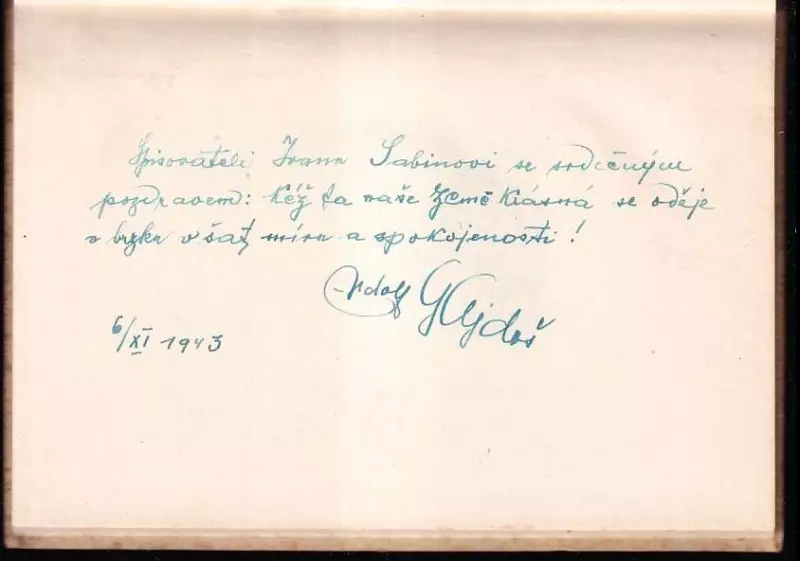 Spisovateli Ivanu Sabinovi se srdečným
pozdravem: Kéž ta naše Země Krásná se oděje
v brzku v šat míru a spokojenosti!
Adolf Gajdoš
6/XI 1943